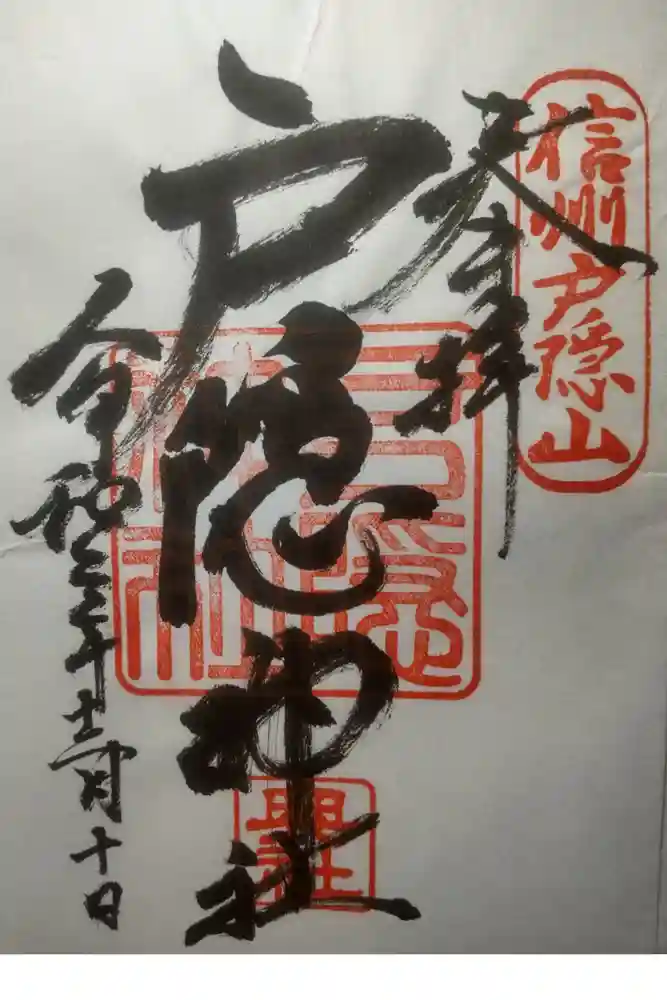 信州戸隠山
奉拝
戸隠神社
戸隠神社
令和 年 月十日